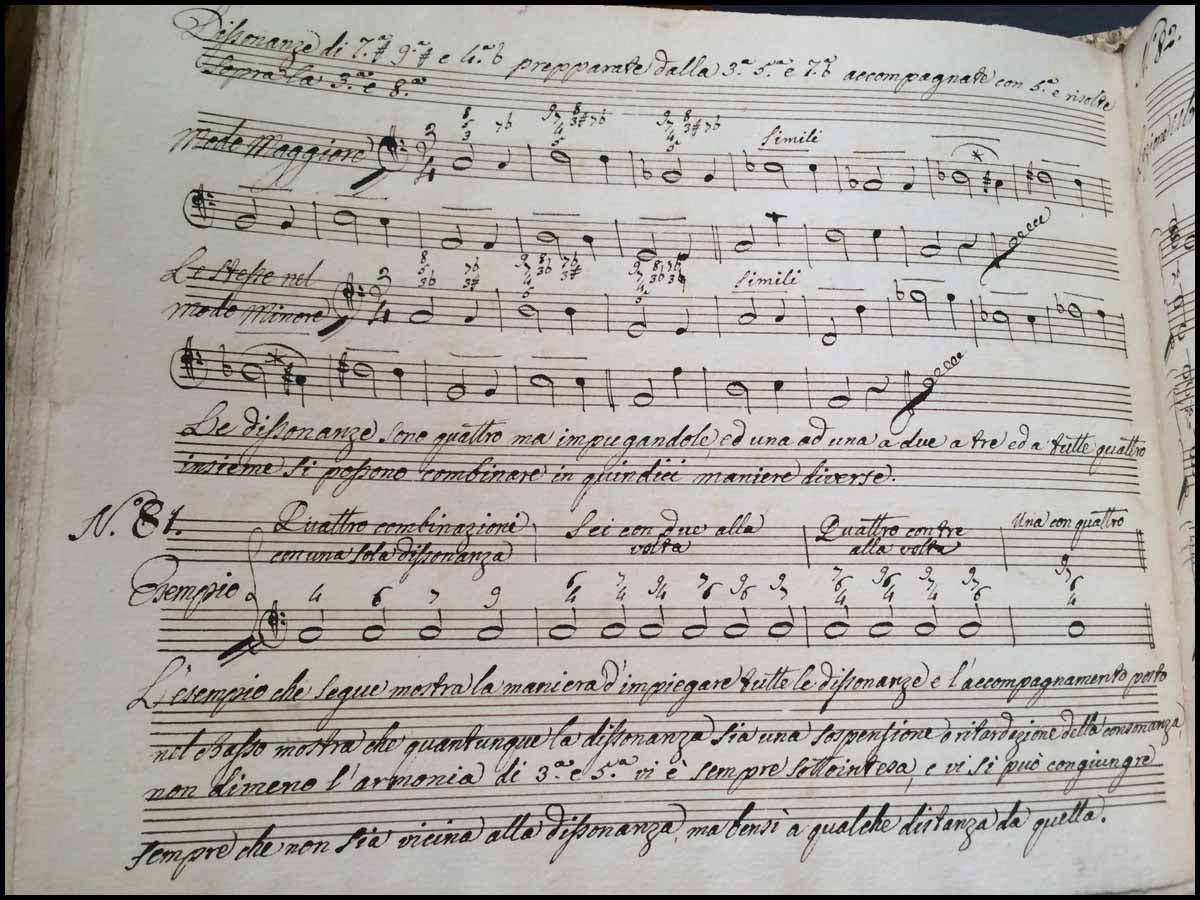 Dissonanze di 7.ª# 9.ª# e 4.ª b prepparate dalla 3.ª 5.ª e 7.ª b accompagnate con 5.ª e risolte
sopra la 3.ª e 8.ª
N.º 82.
Modo Maggiore
Simili
Le stesse nel
modo Minore
Simili
Le dissonanze sono quattro ma impiegandole, ed una ad una a due a tre ed a tutte quattro
insieme si possono combinare in quindici maniere diverse.
N.º 81.
Quattro combinazioni
con una sola dissonanza
Sei con due alla
volta
Quattro con tre
alla volta
Una con quattro
Esempio
4 6 7 9 6/4 7/4 9/4 7/6 9/6 9/7 7/6/4 9/6/4 9/7/4 9/7/6 9/7/6/4
L'esempio che segue mostra la maniera d'impiegare tutte le dissonanze e l'accompagnamento posto
nel basso mostra che quantunque la dissonanza sia una sospensione o ritardazione della consonanza,
non dimeno l'armonia di 3.ª e 5.ª vi è sempre sottointesa, e vi si può congiungre
sempre che non sia vicina alla dissonanza, ma bensì a qualche distanza da quella.